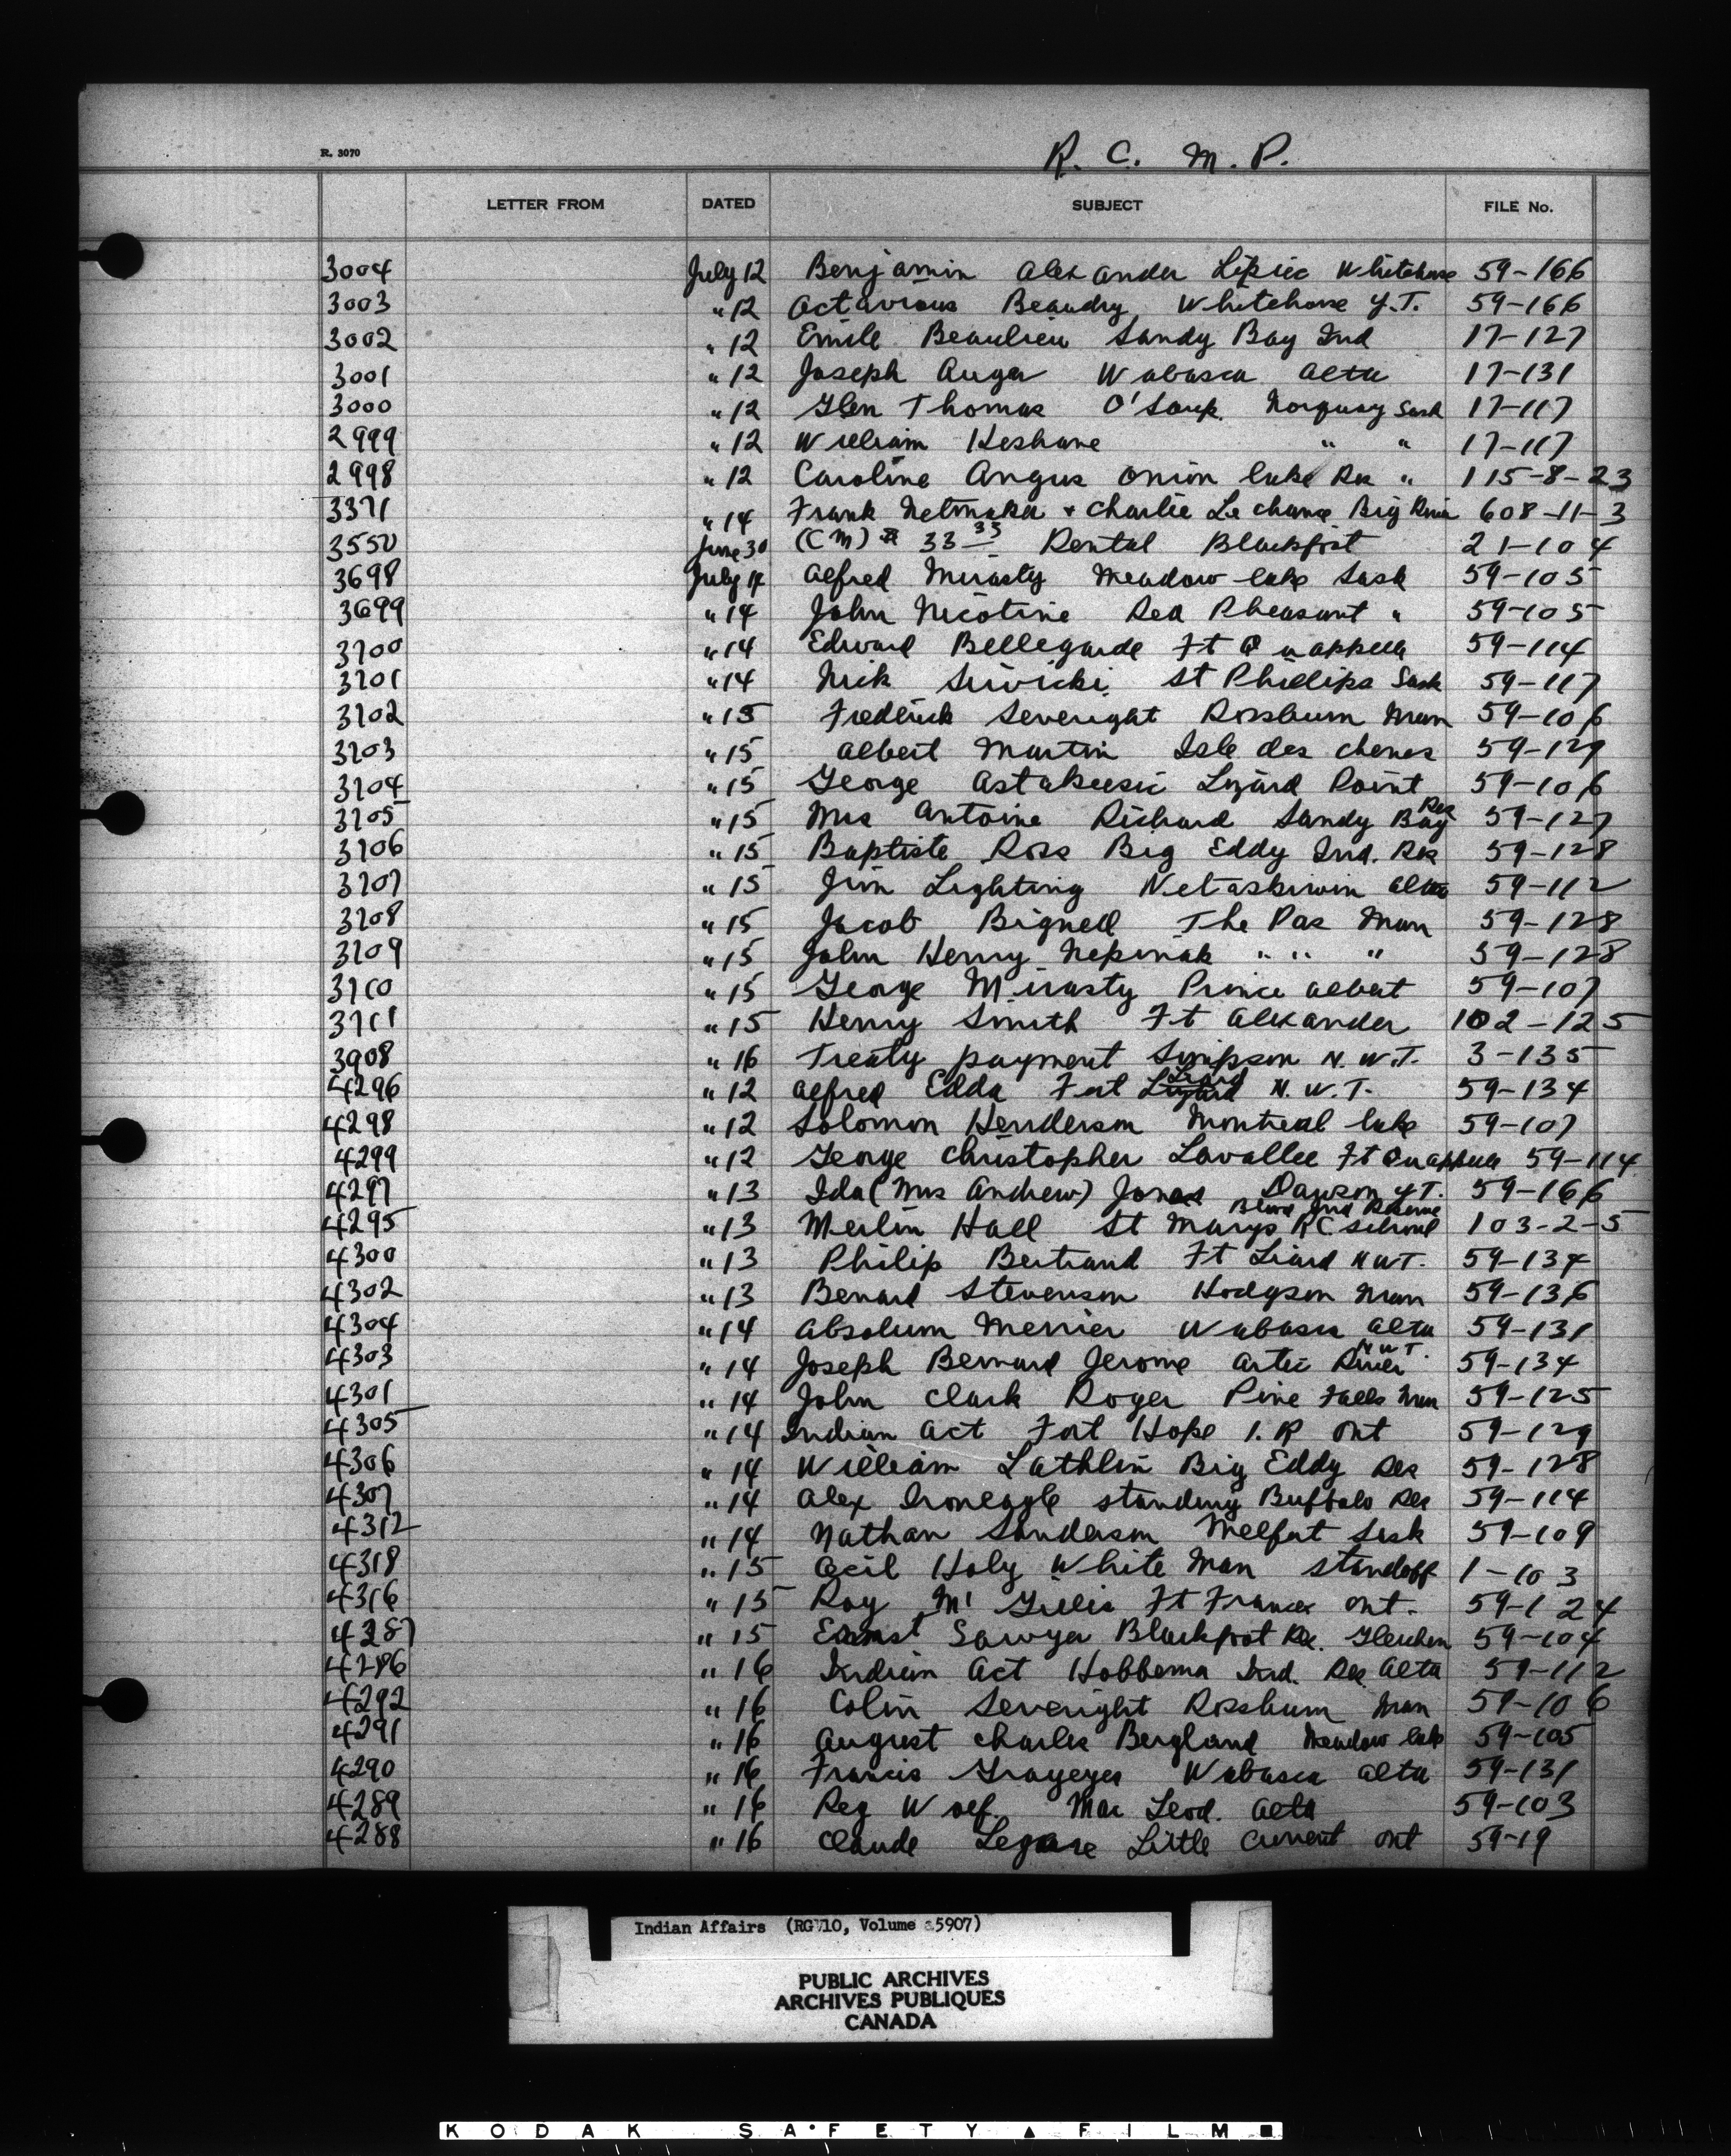 R. C. M. P.
R. 3070
LETTER FROM DATED SUBJECT FILE No.
3004 July 12 Benjamin Alexander Whitehorse 59-166
3003 " 12 Octavious Beaudry Whitehorse Y.T. 59-166
3002 " 12 Emile Beaulieu Sandy Bay Ind 17-127
3001 " 12 Joseph Auger Wabasca Alta 17-131
3000 " 12 Glen Thomas O'Soup. Norquay Sask 17-117
2999 " 12 William Keshane " " 17-117
2998 " 12 Caroline Angus Onion lake Res " 115-8-23
3371 " 14 Frank Netmaker + Charlie Le chance Big River 608-11-3
3550 June 30 (CM) 33 33 Rental Blackfoot 21-104
3698 July 14 Alfred Mirasty Meadow lake Sask 59-105
3699 " 14 John Nicotine Red Pheasant " 59-105
3700 " 14 Edward Bellegarde Ft Qu appelle 59-114
3701 " 14 Nick St Phillips Sask 59-117
3702 " 15 Frederick Severight Rossburn Man 59-106
3703 " 15 Albert Martin Isle des chenes 59-129
3704 " 15 George Astakeesic Lizard Point 59-106
3705 " 15 Mrs Antoine Richard Sandy Bay Res 59-127
3706 " 15 Baptiste Ross Big Eddy Ind. Res 59-128
3707 " 15 Jim Lighting Wetaskiwin Alta 59-112
3708 " 15 Jacob Bignell The Pas Man 59-128
3709 " 15 John Henry Nepinak " " " 59-128
3710 " 15 George Mirasty Prince Albert 59-107
3711 " 15 Henry Smith Ft Alexander 102-125
3908 " 16 Treaty payment Simpson N.W.T. 3-135
4296 " 12 Alfred Edda Fort Lizard Liard N.W.T. 59-134
4298 " 12 Solomon Henderson Montreal lake 59-107
4299 " 12 George Christopher Lavallee Ft Qu appelle 59-114
4297 " 13 Ida (Mrs Andrew) Jones Dawson Y.T. 59-166
4295 " 13 Merlin Hall St Marys RC. school Blood Ind Reserve 103-2-5
4300 " 13 Philip Bertrand Ft Liard NWT. 59-134
4302 " 13 Benard Stevenson Hodgson Man 59-136
4304 " 14 Absolum Merrier Wabasca Alta 59-131
4303 " 14 Joseph Bernard Jerome Artic River N W T. 59-134
4301 " 14 John Clark Roger Pine Falls Man 59-125
4305 " 14 Indian Act Fort Hope I.R Ont 59-129
4306 " 14 William Lathlin Big Eddy Res 59-128
4307 " 14 Alex Ironeagle Standing Buffalo Res 59-114
4312 " 14 Nathan Sanderson Melfort Sask 59-109
4318 " 15 Cecil Holy White Man Standoff 1-103
4316 " 15 Roy Mc Gillis Ft Frances Ont. 59-124
4287 " 15 Earnst Sawyer Blackfoot Res. Gleichen 59-104
4286 " 16 Indian Act Hobbema Ind. Res Alta 59-112
4292 " 16 Colin Severight Rossburn Man 59-106
4291 " 16 August Charles Bergland Meadow lake 59-105
4290 " 16 Francis Grayeyes Wabasca Alta 59-131
4289 " 16 Reg Wolf. Mac Leod. Alta 59-103
4288 " 16 Claude Legare Little Current Ont 59-19
Indian Affairs (RG 10, Volume 5907)
PUBLIC ARCHIVES
ARCHIVES PUBLIQUES
CANADA
KODAK SAFETY FILM